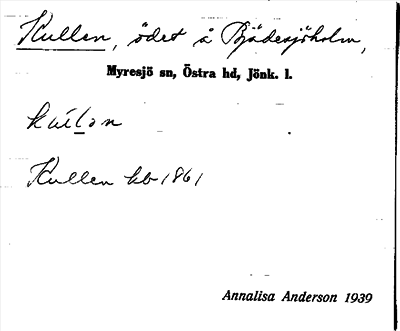 Kullen, ödet å Bjädesjöholm,
Myresjö sn, Östra hd, Jönk. l.
Kullen hb 1861
Annalisa Anderson 1939